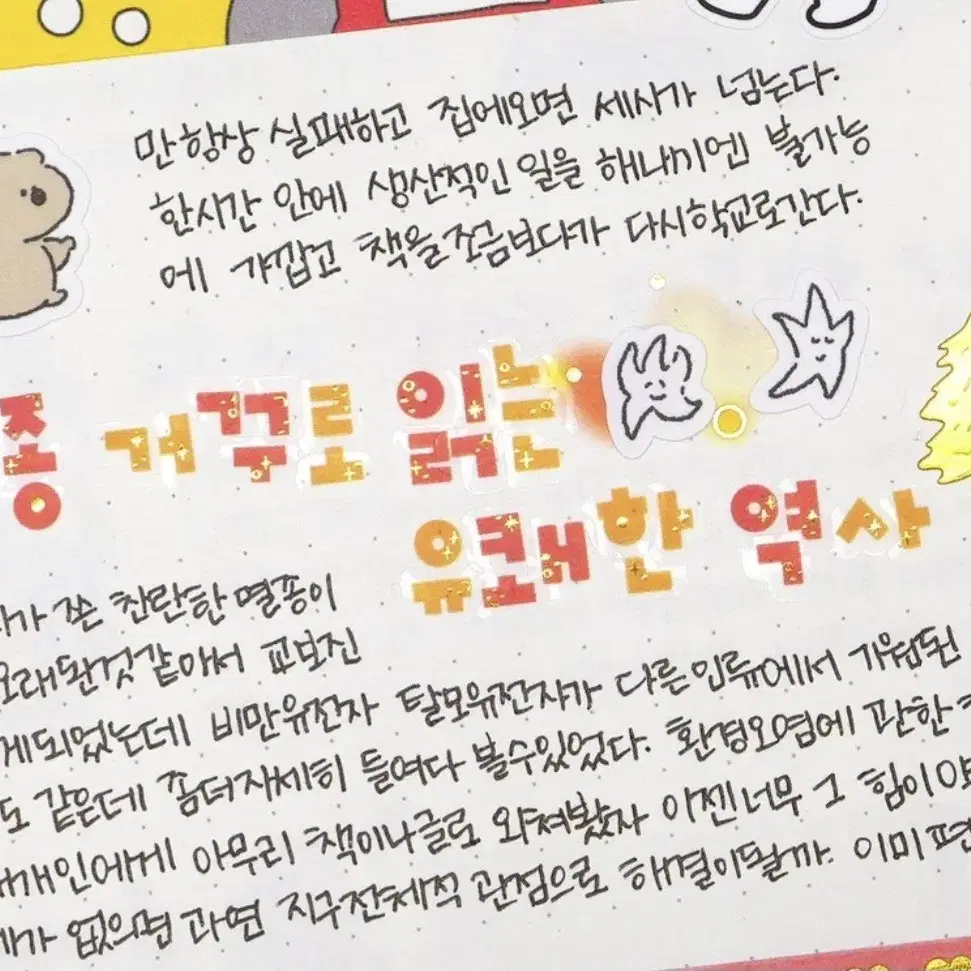 만 항상 실패하고 집에오면 세시가 넘는다.
한시간 안에 생산적인 일을 해내기엔 불가능
에 가깝고 책을 조금보다가 다시학교로간다.
종 거꾸로 읽는
유쾌한 역사
가 쓴 찬란한 멸종이
오래된것같아서 교보진
게되었는데 비만유전자 탈모유전자가 다른인류에서 기원된
도 같은데 좀더자세히 들여다 볼수있었다. 환경오염에 관한
개인에게 아무리 책이나글로 외쳐봤자 이젠너무 그 힘이
가 없으면 과연 지구전체적 관점으로 해결이될까. 이미